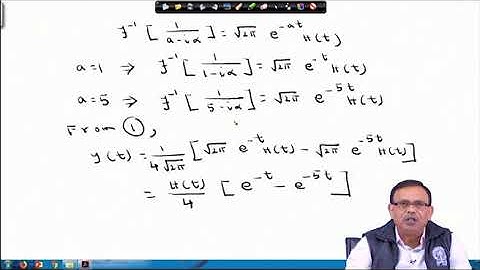 𝓕⁻¹ [ 1/(a-iα) ] = √2π e^(-at) H(t)
a=1 ⇒ 𝓕⁻¹ [ 1/(1-iα) ] = √2π e^(-t) H(t)
a=5 ⇒ 𝓕⁻¹ [ 1/(5-iα) ] = √2π e^(-5t) H(t)
From ①,
y(t) = 1/(4√2π) [ √2π e^(-t) H(t) - √2π e^(-5t) H(t) ]
= H(t)/4 [ e^(-t) - e^(-5t) ]